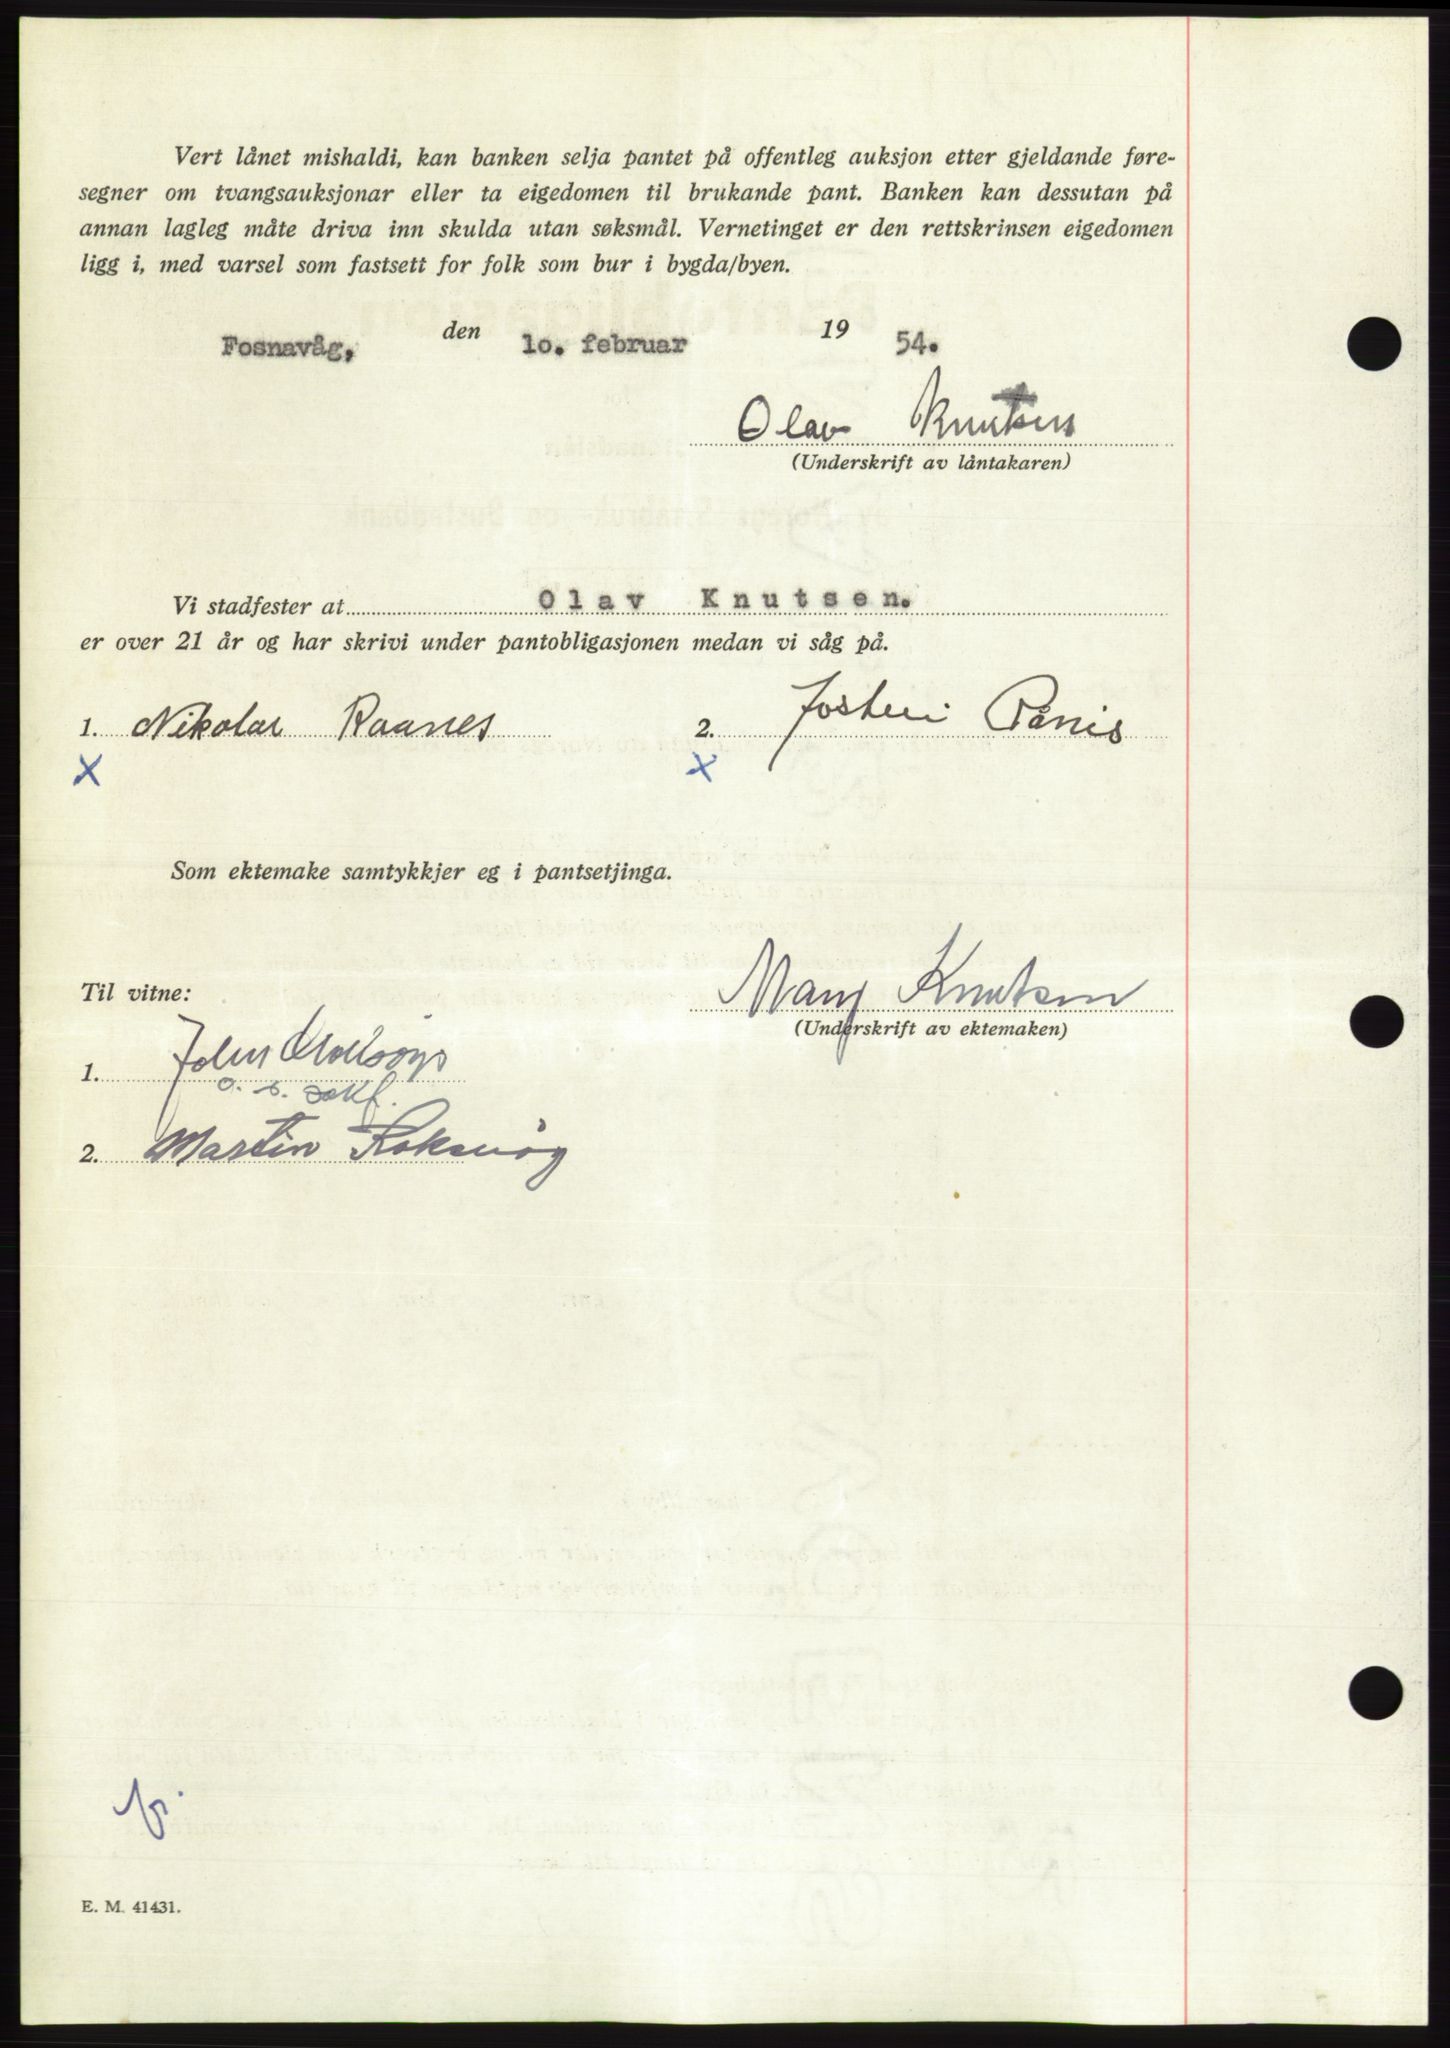 Vert lånet mishaldi, kan banken selja pantet på offentleg auksjon etter gjeldande føre-
segner om tvangsauksjonar eller ta eigedomen til brukande pant. Banken kan dessutan på
annan lagleg måte driva inn skulda utan søksmål. Vernetinget er den rettskrinsen eigedomen
ligg i, med varsel som fastsett for folk som bur i bygda/byen.
Fosnavåg, den 10. februar 19 54.
Olav Knutsen
(Underskrift av låntakaren)
Vi stadfester at Olav Knutsen.
er over 21 år og har skrivi under pantobligasjonen medan vi såg på.
1. Nikolai Raanes 2.
x x
Som ektemake samtykkjer eg i pantsetjinga.
Til vitne: Mary Knutsen
(Underskrift av ektemaken)
1. John
2. Martin
E. M. 41431.